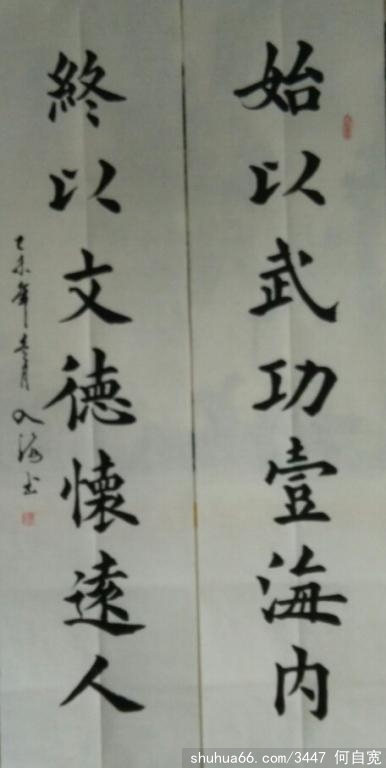 始以武功壹海内
終以文德懷遠人
乙未年 月 海书
shuhua66.com/3447 何自宽